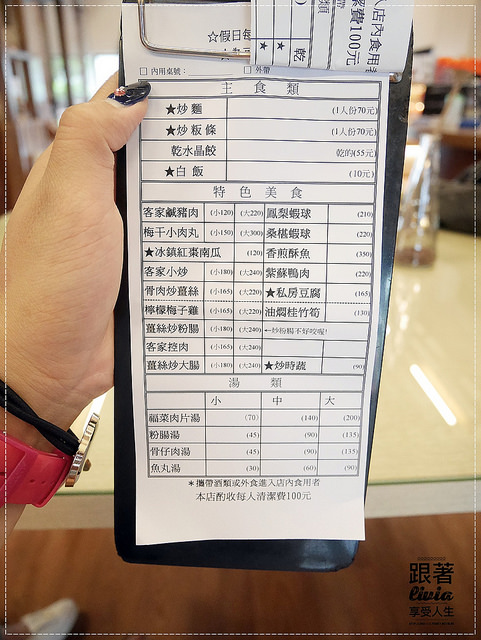 ☆假日每
★
★
乾
類
人店內食用者
潔費100元
□ 內用桌號： □ 外帶
主 食 類
★炒 麵 (1人份70元)
★炒 粄 條 (1人份70元)
乾水晶餃 乾的(55元)
★白 飯 (10元)
特 色 美 食
客家鹹豬肉 (小120) (大220) 鳳梨蝦球 (210)
梅干小肉丸 (小150) (大300) 桑椹蝦球 (220)
★冰鎮紅棗南瓜 (120) 香煎酥魚 (350)
客家小炒 (小180) (大240) 紫蘇鴨肉 (220)
骨肉炒薑絲 (小165) (大220) ★私房豆腐 (165)
檸檬梅子雞 (小165) (大220) 油燜桂竹筍 (130)
薑絲炒粉腸 (小180) (大240) ←炒粉腸不好咬喔!
客家控肉 (小165) (大240)
薑絲炒大腸 (小180) (大240) ★炒時蔬 (90)
湯 類
小 中 大
福菜肉片湯 (70) (140) (200)
粉腸湯 (45) (90) (135)
骨仔肉湯 (45) (90) (135)
魚丸湯 (30) (60) (90)
＊攜帶酒類或外食進入店內食用者
本店酌收每人清潔費100元
跟著
livia
享受人生